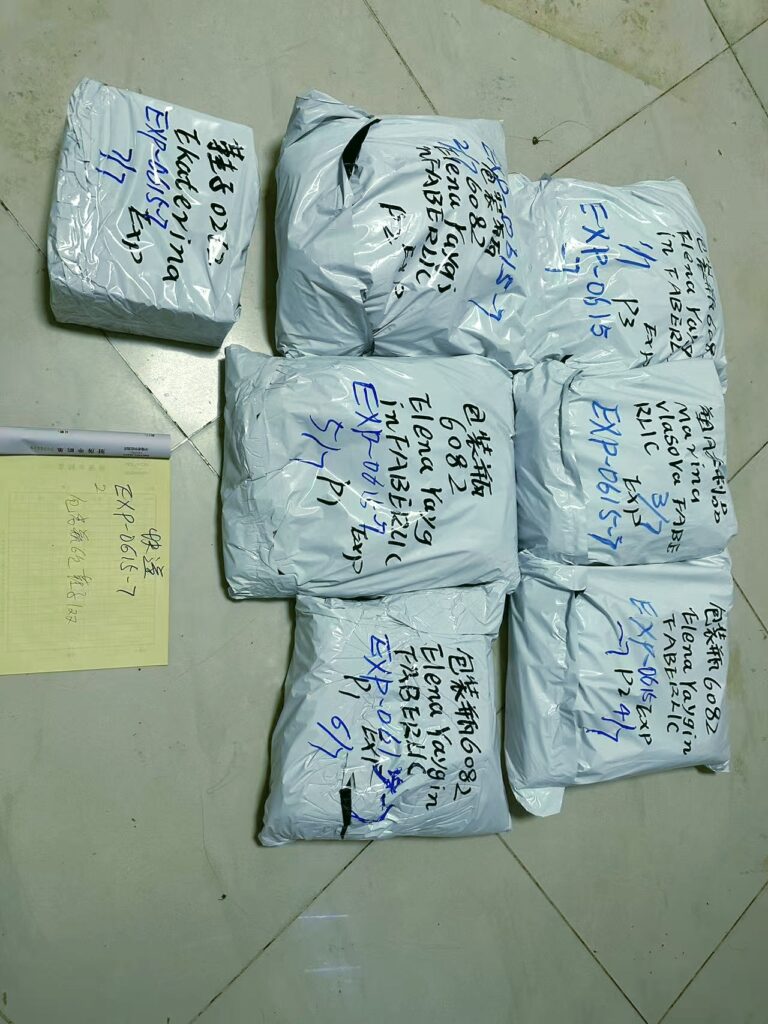 鞋子026
Ekaterina
EXP-0615-7
Exp
7/7
EXP-0615-7
包装瓶
2/7 6082
Elena Yaygi
nFABERLIC
P2 Exp
包装瓶6082
Elena Yayg
in FABERL
1/7 P3 Exp
EXP-0615
-7
包装瓶
6082
Elena Yayg
inFABERLIC
EXP-0615-7
5/7 P1 Exp
Marina
Vlasova FABE
RLIC
3/7
EXP
EXP-0615-7
包装瓶6082
Elena Yaygin
FABERLIC
P1
EXP-0615-7
EXP
6/7
包装瓶6082
Elena Yaygin
FABERLIC
EXP-0615 EXP
-7 P2 4/7
快递
EXP-0615-7
2